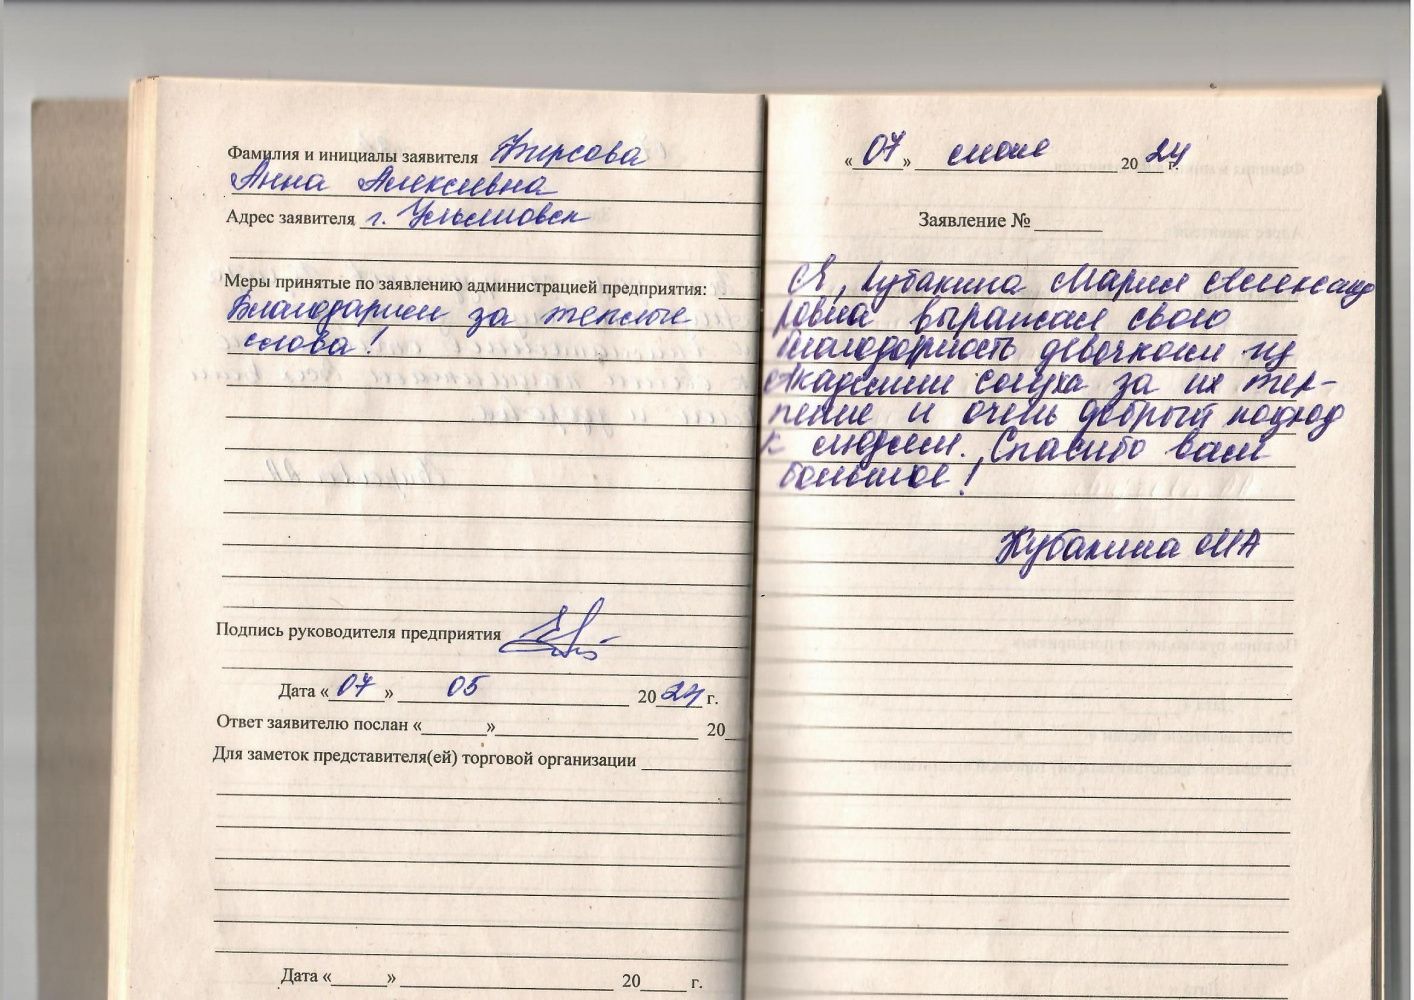 Фамилия и инициалы заявителя Фирсова
Анна Алексеевна
Адрес заявителя г. Ульяновск
Меры принятые по заявлению администрацией предприятия:
Благодарим за теплые
слова!
Подпись руководителя предприятия
Дата « 07 » 05 20 24 г.
Ответ заявителю послан « » 20
Для заметок представителя(ей) торговой организации
Дата « » 20 г.
« 07 » июня 20 24 г.
Заявление №
Я, Кубакина Мария Александ
ровна выражаю свою
благодарность девочкам из
Академии слуха за их тер-
пение и очень добрый подход
к людям. Спасибо вам
большое!
Кубакина МА